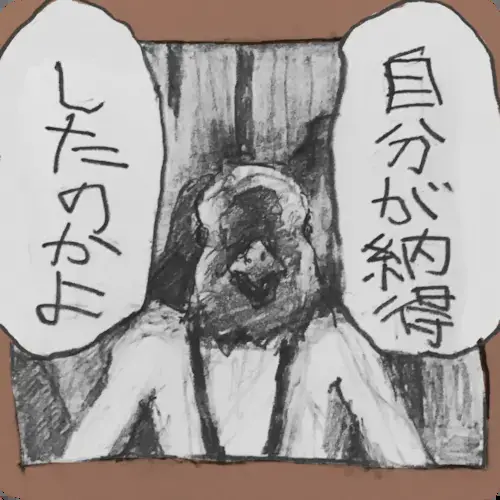 自分が納得
したのかよ